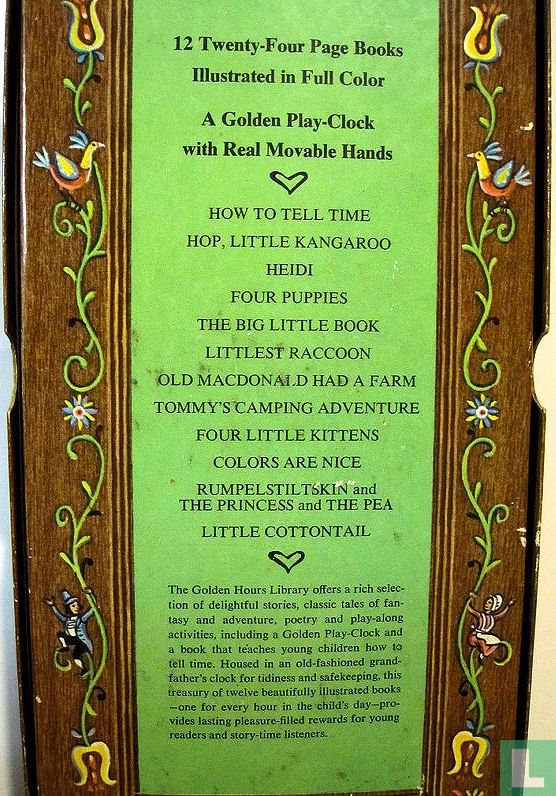 12 Twenty-Four Page Books
Illustrated in Full Color
A Golden Play-Clock
with Real Movable Hands
HOW TO TELL TIME
HOP, LITTLE KANGAROO
HEIDI
FOUR PUPPIES
THE BIG LITTLE BOOK
LITTLEST RACCOON
OLD MACDONALD HAD A FARM
TOMMY'S CAMPING ADVENTURE
FOUR LITTLE KITTENS
COLORS ARE NICE
RUMPELSTILTSKIN and
THE PRINCESS and THE PEA
LITTLE COTTONTAIL
The Golden Hours Library offers a rich selec-
tion of delightful stories, classic tales of fan-
tasy and adventure, poetry and play-along
activities, including a Golden Play-Clock and
a book that teaches young children how to
tell time. Housed in an old-fashioned grand-
father's clock for tidiness and safekeeping, this
treasury of twelve beautifully illustrated books
—one for every hour in the child's day—pro-
vides lasting pleasure-filled rewards for young
readers and story-time listeners.
L